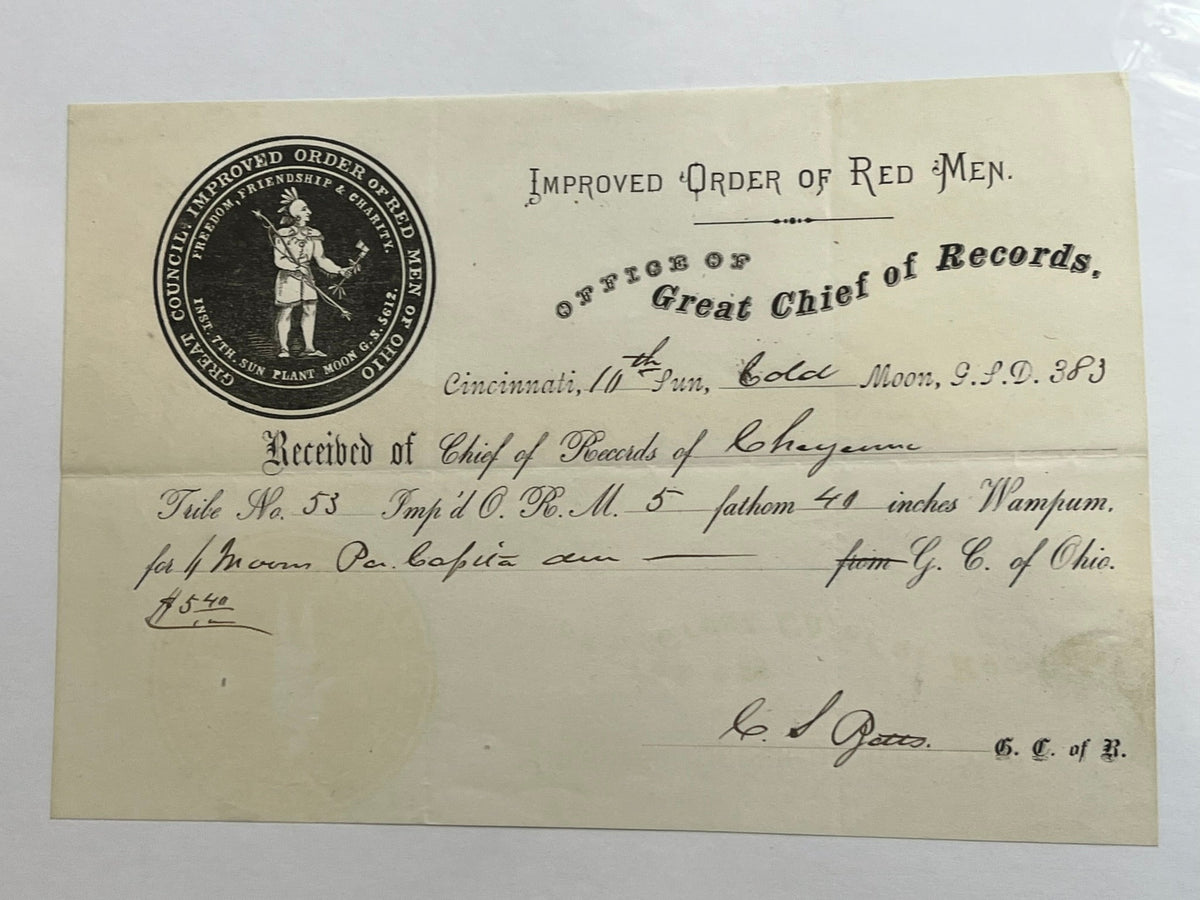 GREAT COUNCIL. IMPROVED ORDER OF RED MEN OF OHIO
FREEDOM, FRIENDSHIP & CHARITY.
INST. 7TH. SUN PLANT MOON G.S. 5612.
IMPROVED ORDER OF RED MEN.
OFFICE OF
Great Chief of Records,
Cincinnati, 10th Sun, Cold Moon, G.S.D. 383
Received of Chief of Records of Cheyenne
Tribe No. 53 Imp'd O. R. M. 5 fathom 40 inches Wampum.
for 4 Moons Per Capita due from G. C. of Ohio.
$5 40
C. S Betts. G. C. of R.